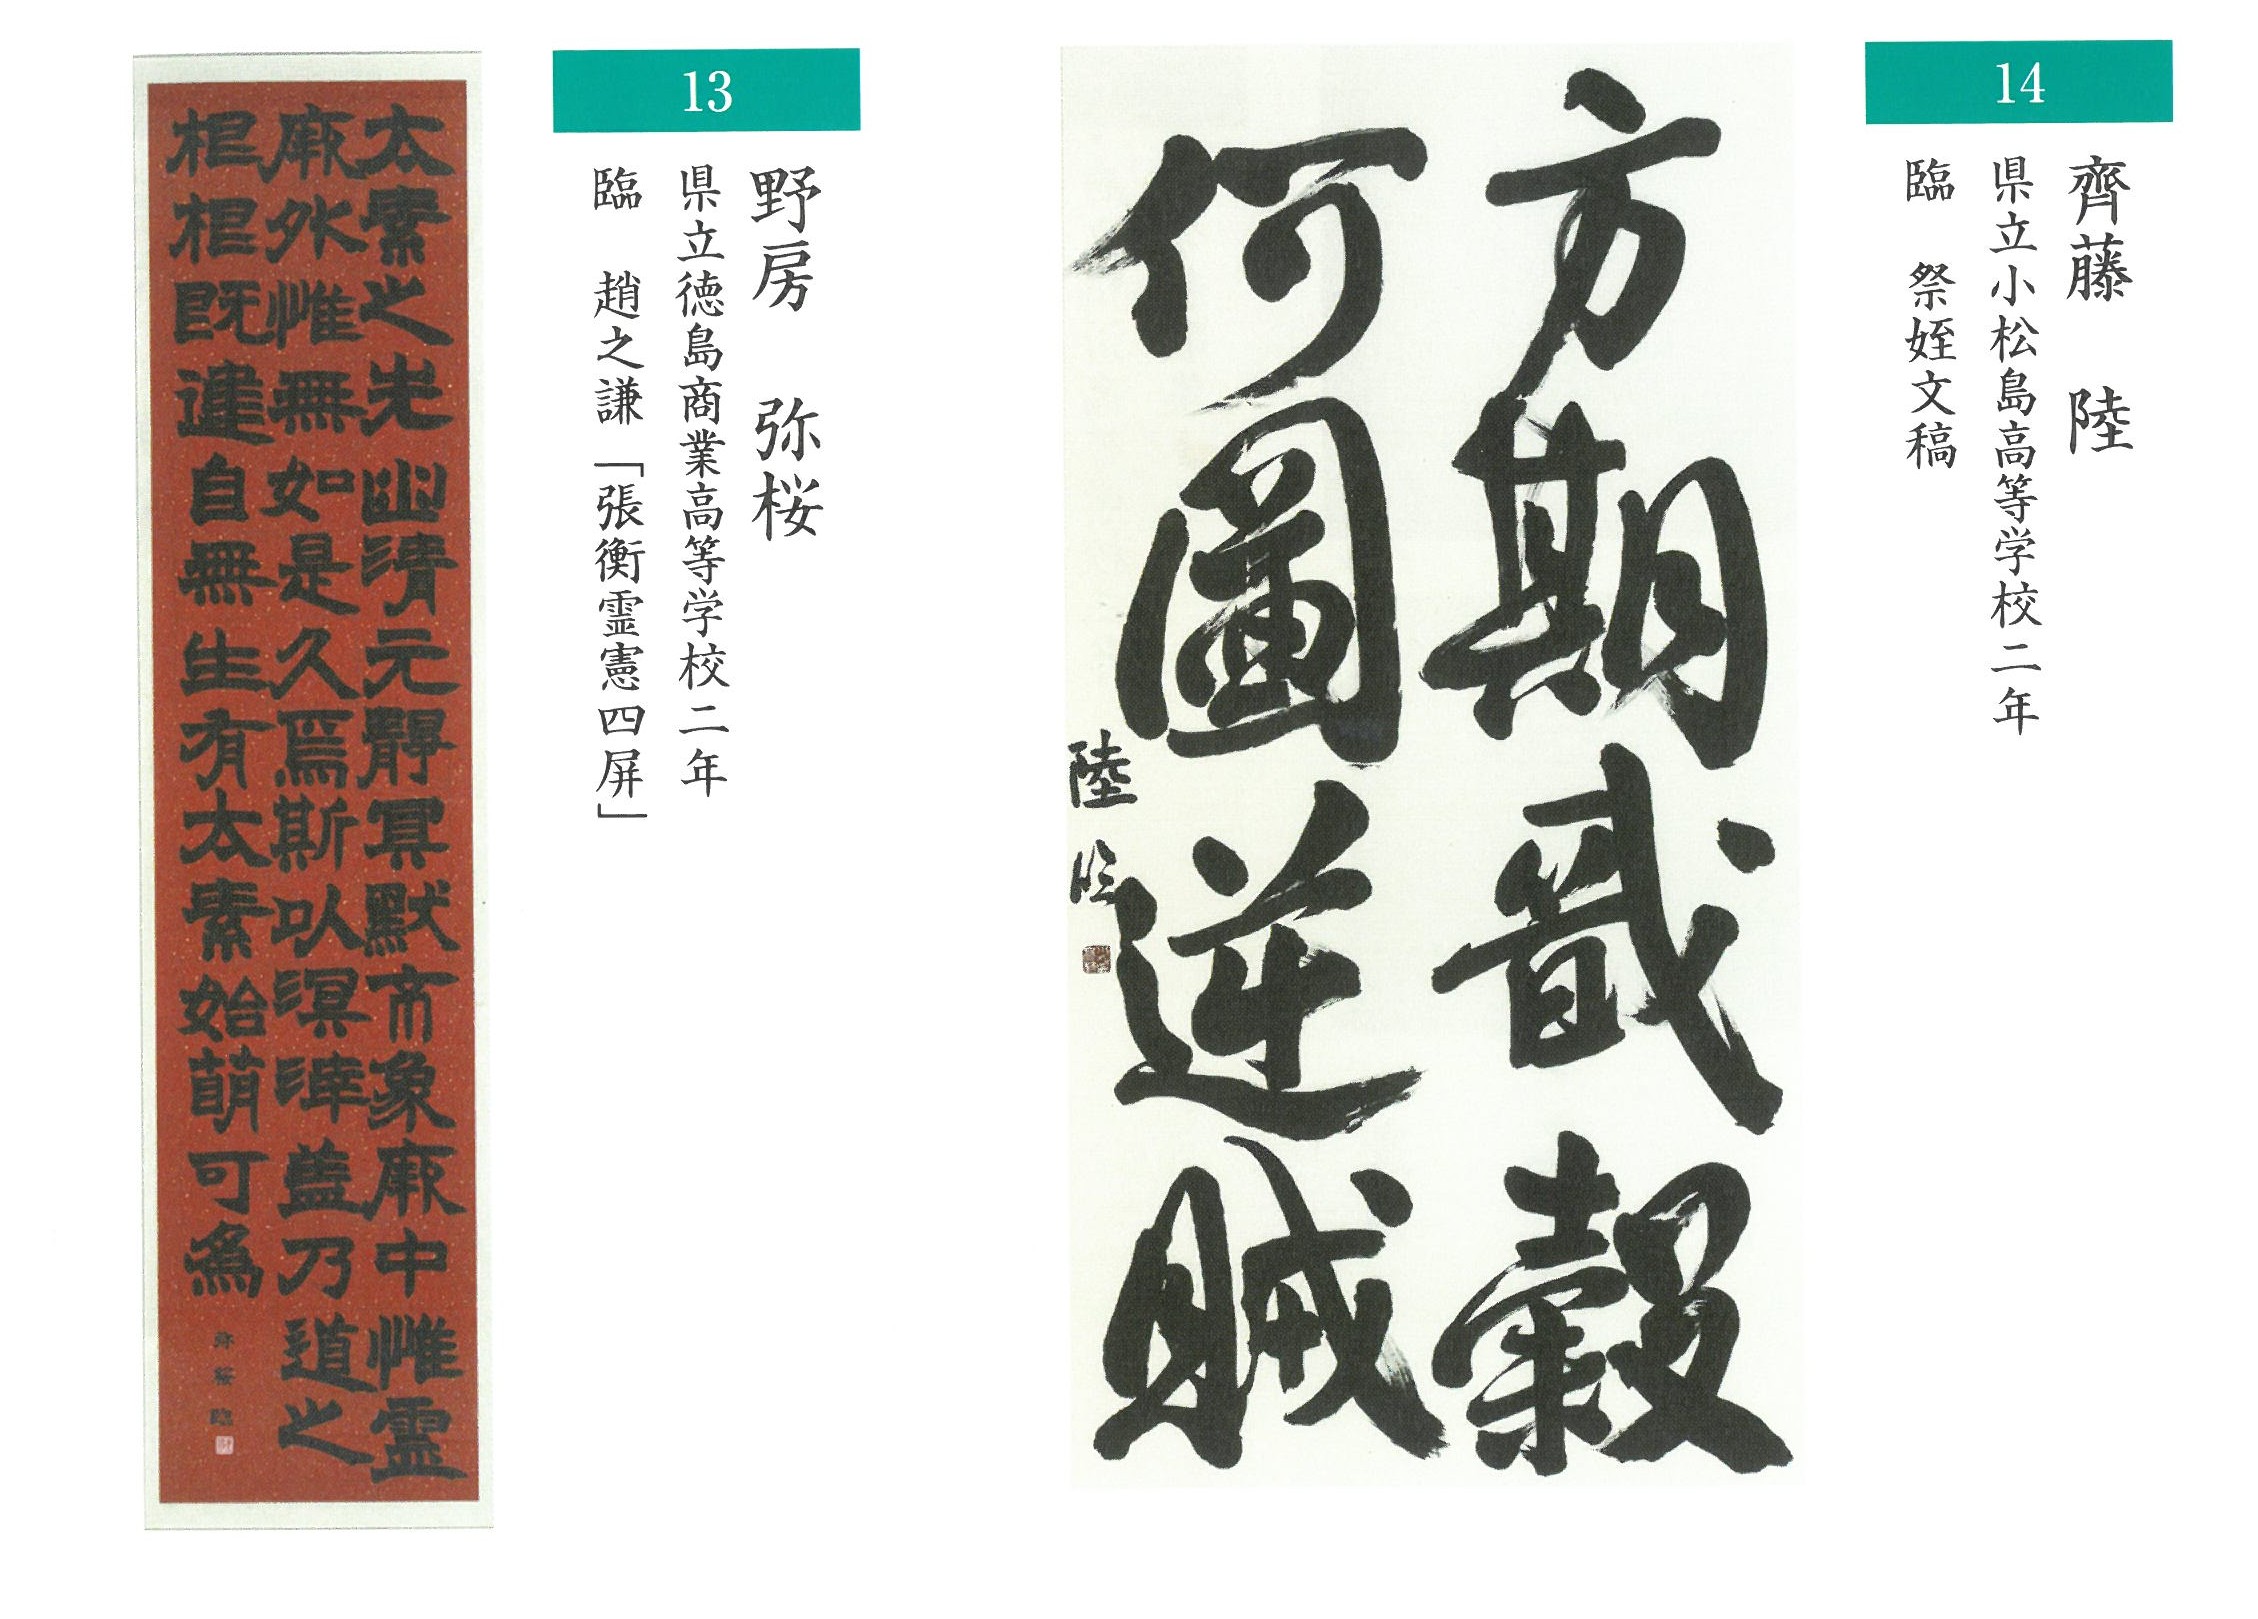 13
野房 弥桜
県立徳島商業高等学校二年
臨 趙之謙「張衡霊憲四屏」
太素之先幽清元靜冥默象厥中惟靈
厥外惟無如是久焉斯以溟涬蓋乃道之
根根既建自無生有太素始萌可爲
弥桜臨
14
齊藤 陸
県立小松島高等学校二年
臨 祭姪文稿
方期戩穀
何圖逆賊
陸臨